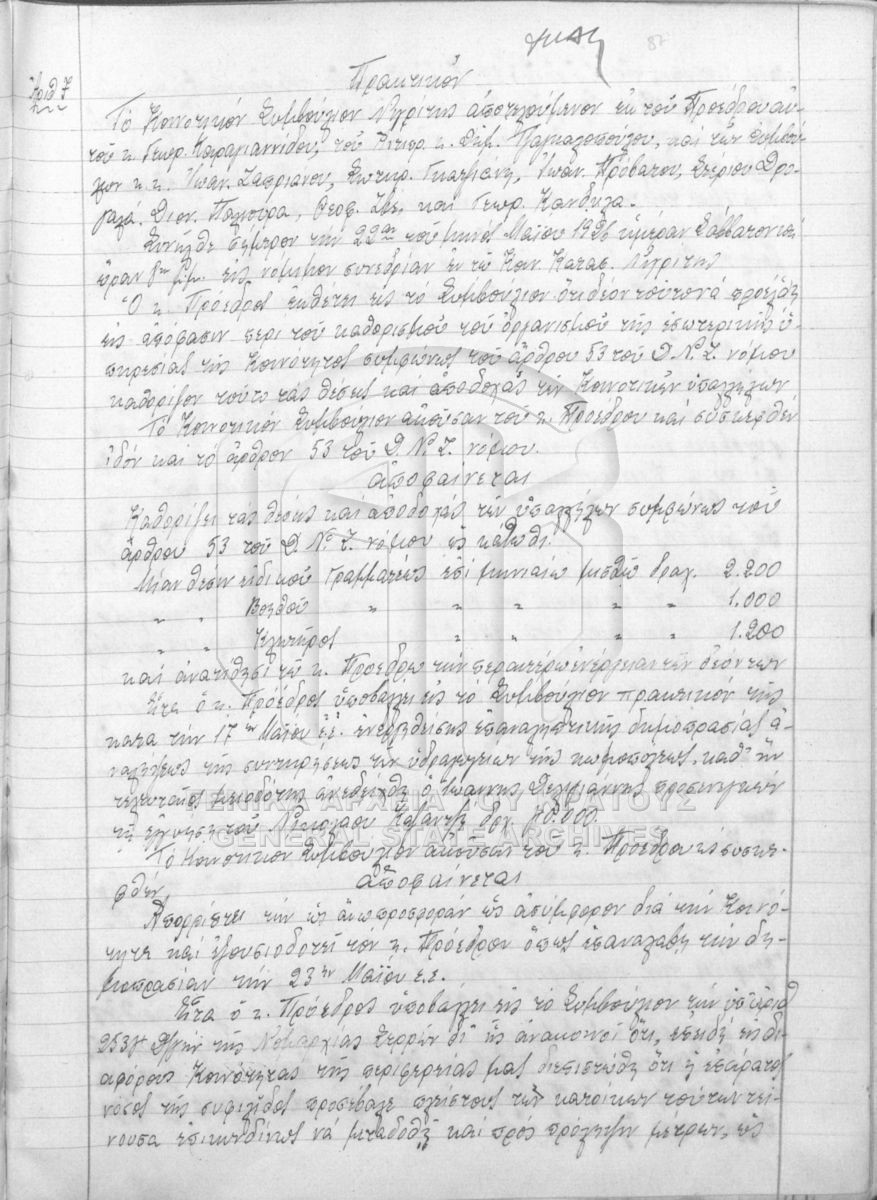 87
Ἀριθ 7
Πρακτικόν
Τό Κοινοτικόν Συμβούλιον Νιγρίτης ἀποτελούμενον ἐκ τοῦ Προέδρου αὐ-
τοῦ κ. Γεωρ. Καραγιαννίδου, τοῦ Ἀντιπρ. κ. Δημ. Παγκαλοπούλου, καί τῶν Συμβού-
λων κ.κ. Ἰωαν. Ζαπριανου, Σωτηρ. Γκαλιάνη, Ἰωαν. Πρόβατου, Στέριου Δρο-
γαλᾶ, Διον. Πολυζούρα, Θεοφ. καί Γεωρ. Κανδύλα.
Συνῆλθε σήμερον τήν 22αν τοῦ μηνός Μαΐου 1926 ἡμέραν Σάββατον καί
ὥραν 8ην μ.μ. εἰς νόμιμον συνεδρίαν ἐν τῷ Κοιν. Καταστ. Νιγρίτης
Ὁ κ. Πρόεδρος ἐκθέτει εἰς τό Συμβούλιον ὅτι δέον τοῦτο νά προέλθῃ
εἰς ἀπόφασιν περί τοῦ καθορισμοῦ τοῦ ὀργανισμοῦ τῆς ἐσωτερικῆς ὑ-
πηρεσίας τῆς Κοινότητος συμφώνως τοῦ ἄρθρου 53 τοῦ Δ.Ν.Ζ. νόμου
καθορίζον τοῦτο τάς θέσεις καί ἀποδοχάς τῶν Κοινοτικῶν ὑπαλλήλων
Τό Κοινοτικόν Συμβούλιον ἀκοῦσαν τοῦ κ. Προέδρου καί συσκεφθέν
ἰδόν καί τό ἄρθρον 53 τοῦ Δ.Ν.Ζ. νόμου.
ἀποφαίνεται
Καθορίζει τάς θέσεις καί ἀποδοχάς τῶν ὑπαλλήλων συμφώνως τοῦ
ἄρθρου 53 τοῦ Δ.Ν.Ζ. νόμου ὡς κάτωθι.
Μίαν θέσιν εἰδικοῦ Γραμματέως ἐπί μηνιαίῳ μισθῷ δραχ. 2.200
" " Βοηθοῦ " " " " " 1.000
" " Κλητῆρος " " " " 1.200
καί ἀνατίθησι τῷ κ. Προέδρῳ τήν περαιτέρω ἐνέργειαν τῶν δεόντων
Εἶτα ὁ κ. Πρόεδρος ὑποβάλλει εἰς τό Συμβούλιον πρακτικόν τῆς
κατά τήν 17ην Μαΐου ἐ.ἔ. ἐνεργηθείσης ἐπαναληπτικῆς δημοπρασίας ἀ-
ναλήψεως τῆς συντηρήσεως τῶν ὑδραγωγείων τῆς κωμοπόλεως, καθ' ἥν
τελευταῖος μειοδότης ἀνεδείχθη ὁ Ἰωάννης Δελιγιάννης προσενεγκών
τῇ ἐγγυήσει τοῦ Νικολάου δρχ.
ΓΕΝΙΚΑ ΑΡΧΕΙΑ ΤΟΥ ΚΡΑΤΟΥΣ
GENERAL STATE ARCHIVES
Τό Κοινοτικόν Συμβούλιον ἀκοῦσαν τοῦ κ. Προέδρου καί συσκε-
φθέν
ἀποφαίνεται
Ἀπορρίπτει τήν ὡς ἄνω προσφοράν ὡς ἀσύμφορον διά τήν Κοινό-
τητα καί ἐξουσιοδοτεῖ τόν κ. Πρόεδρον ὅπως ἐπαναλάβῃ τήν δη-
μοπρασίαν τήν 23ην Μαΐου ἐ.ἔ.
Εἶτα ὁ κ. Πρόεδρος ὑποβάλλει εἰς τό Συμβούλιον τήν ὑπ' ἀριθ
Δ/γήν τῆς Νομαρχίας Σερρῶν δι' ἧς ἀνακοινοῖ ὅτι, ἐπειδή εἰς δι-
αφόρους Κοινότητας τῆς περιφερείας μας διεπιστώθη ὅτι ἡ ἐπάρατος
νόσος τῆς συφιλίδος προσέβαλε πλείστους τῶν κατοίκων τούτων τεί-
νουσα ἐπικινδύνως νά μεταδοθῇ καί πρός πρόληψιν μέτρων, ὡς